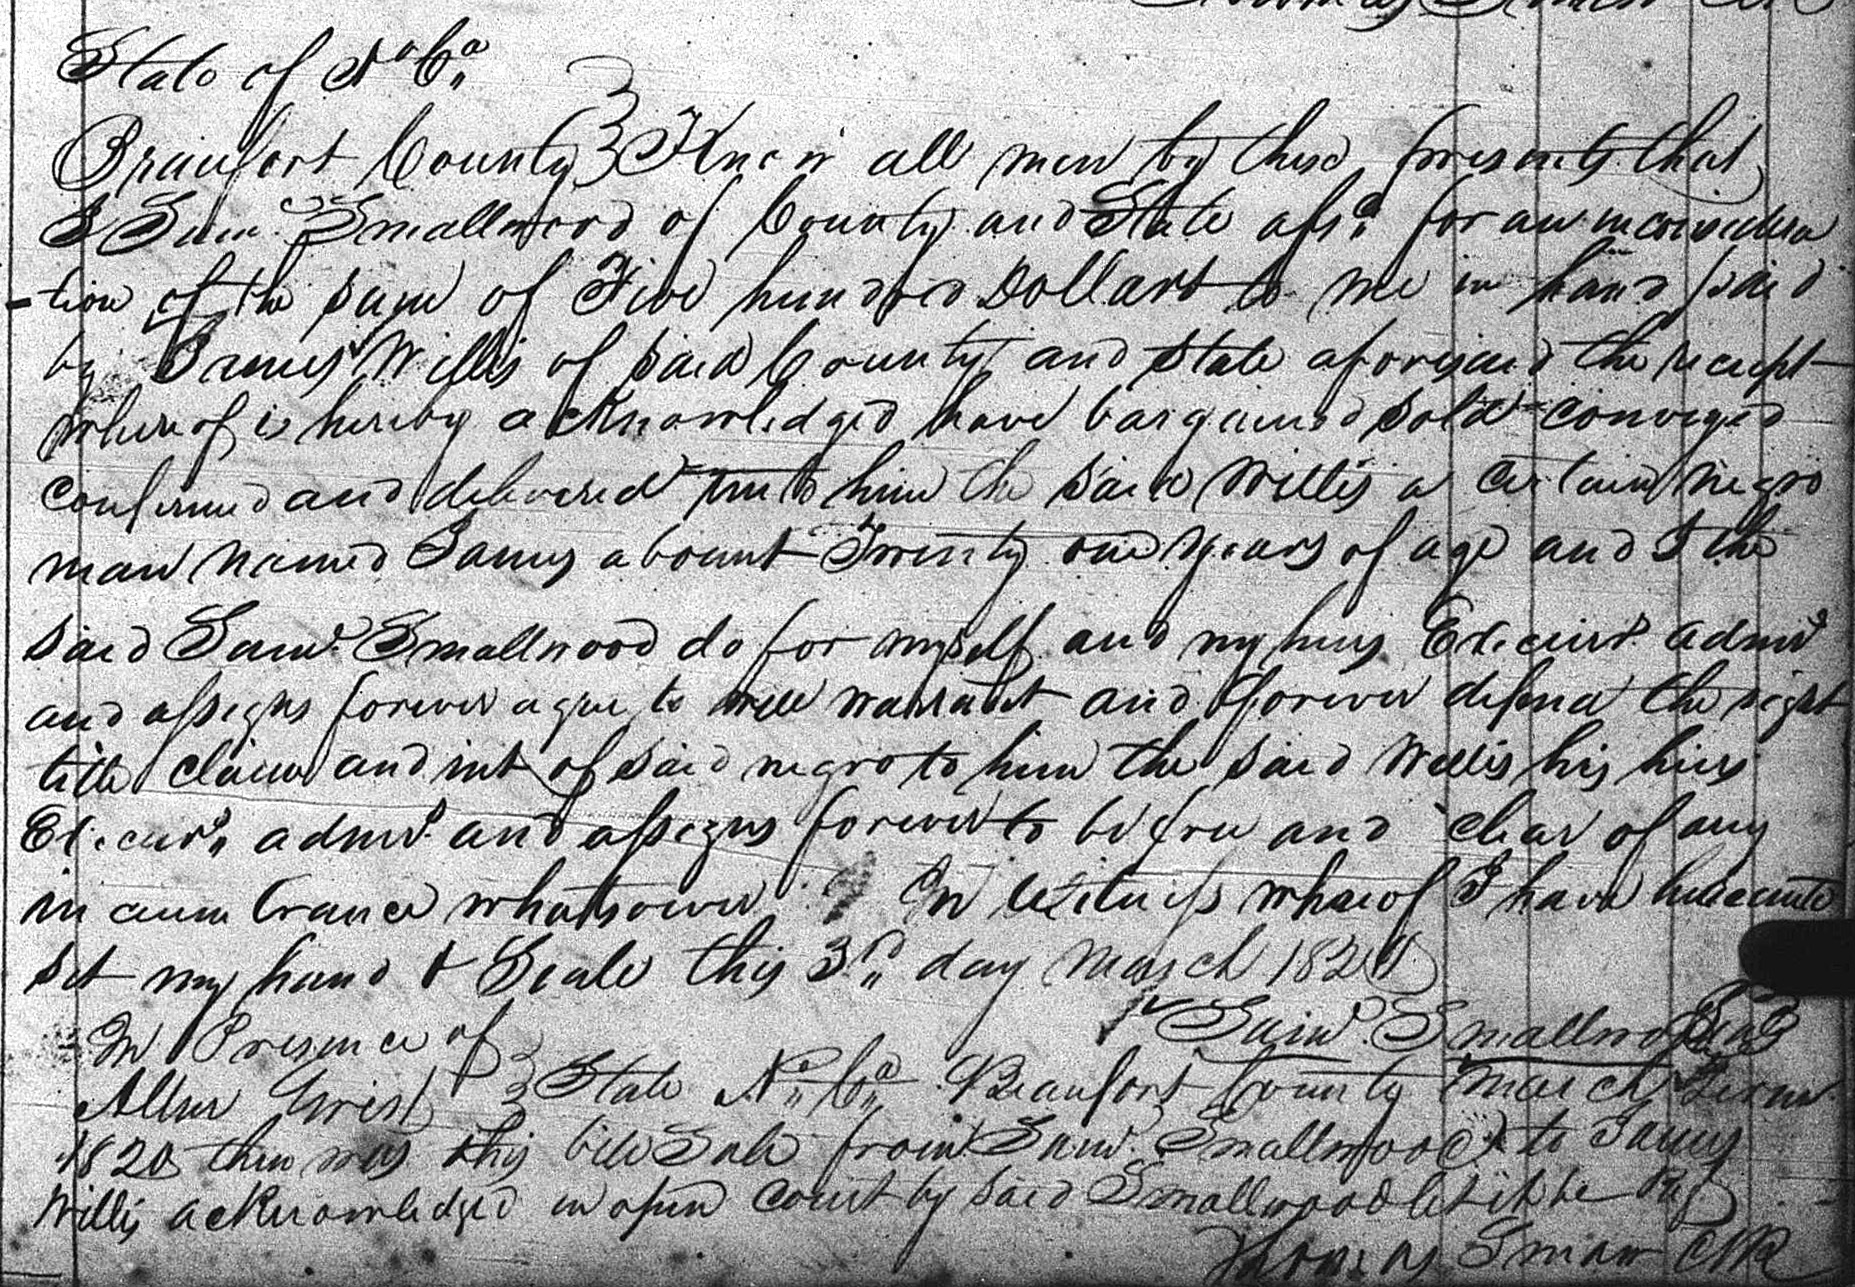 State of No Ca
Beaufort County } Know all men by these presents that
I Saml. Smallwood of County and State afsd. for an in considera
tion of the sum of Five hundred Dollars to me in hand paid
by James Willis of said County and State aforesaid the receipt
whereof is hereby acknowledged have bargained sold conveyed
confirmed and delivered unto him the said Willis a certain negro
man named James abount Twenty one years of age and I the
said Saml. Smallwood do for myself and my heirs Execurs. admrs
and assigns forever agree to well warrant and forever defend the right
title claim and int of said negro to him the said Willis his heirs
Execurs. admrs. and assigns forever to be free and clear of any
incumbrance whatsoever In witness whereof I have hereunto
set my hand & Seale this 3rd day March 1820
In Presence of Saml. Smallwood Seal
Allen Grist } State No. Ca. Beaufort County March Term
1820 then was this bill Sale from Saml. Smallwood to James
Willis acknowledged in open court by said Smallwood let it be Reg
Thomas Smaw CLK